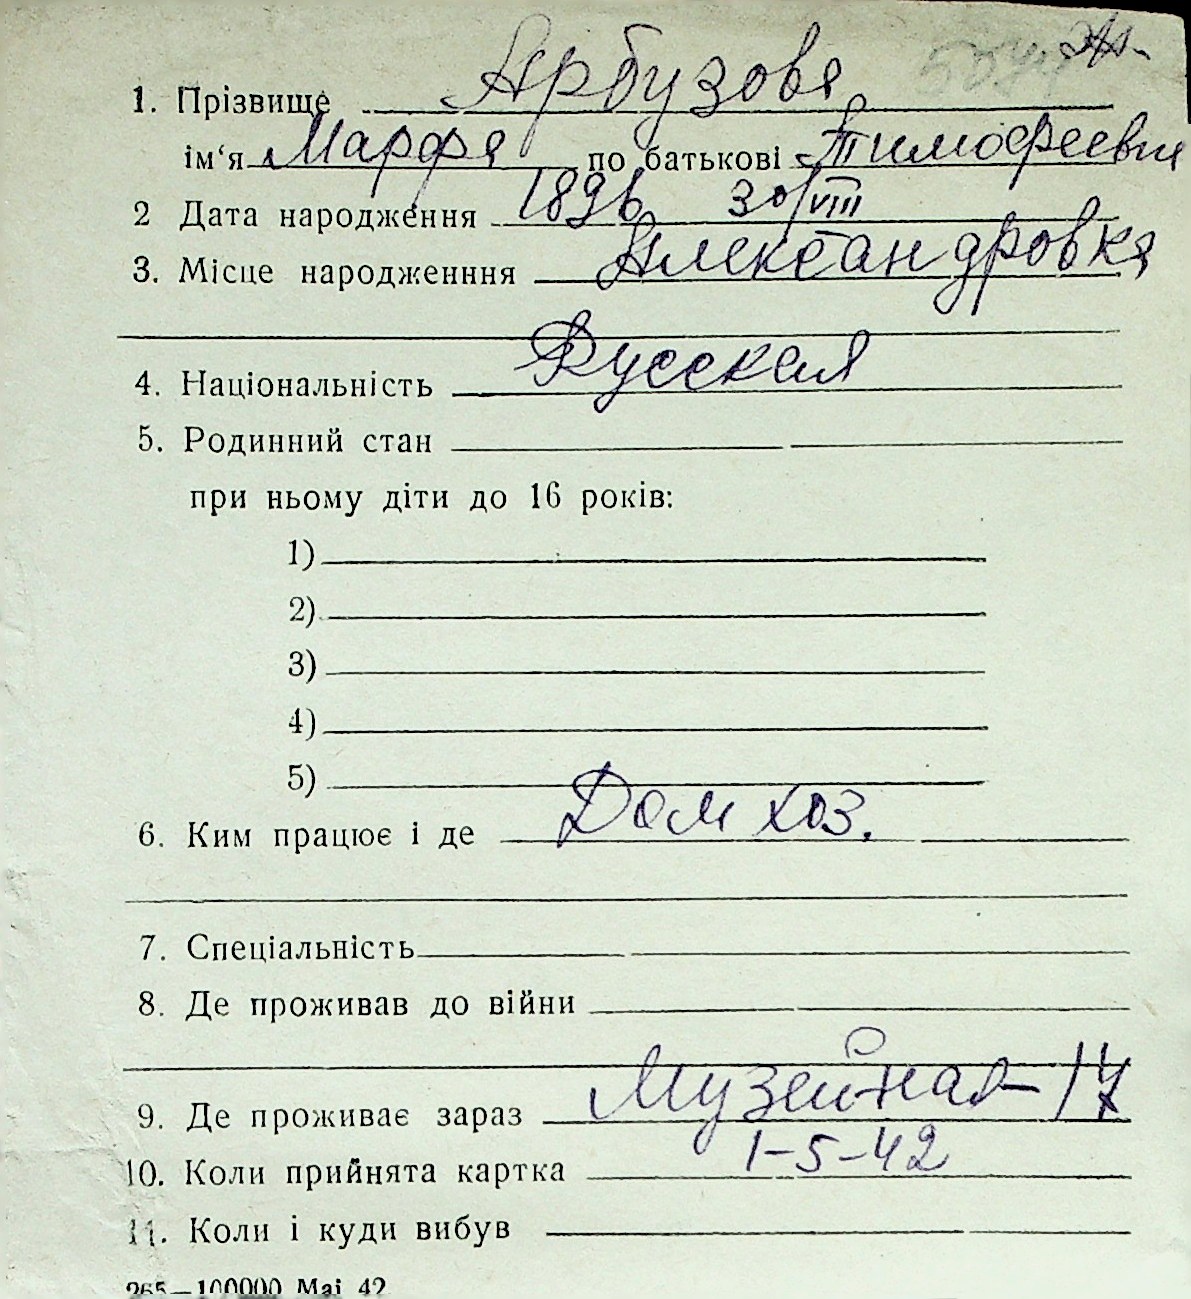 1. Прізвище Арбузова
ім‘я Марфа по батькові Тимофеевна
2 Дата народження 1896 30/VIII
3. Місце народженння Александровка
4. Національність Русская
5. Родинний стан
при ньому діти до 16 років:
1)
2)
3)
4)
5)
6. Ким працює і де Дом хоз.
7. Спеціальність
8. Де проживав до війни
9. Де проживає зараз Музейная – 17
10. Коли прийнята картка 1-5-42
11. Коли і куди вибув
265—100000 Mai 42